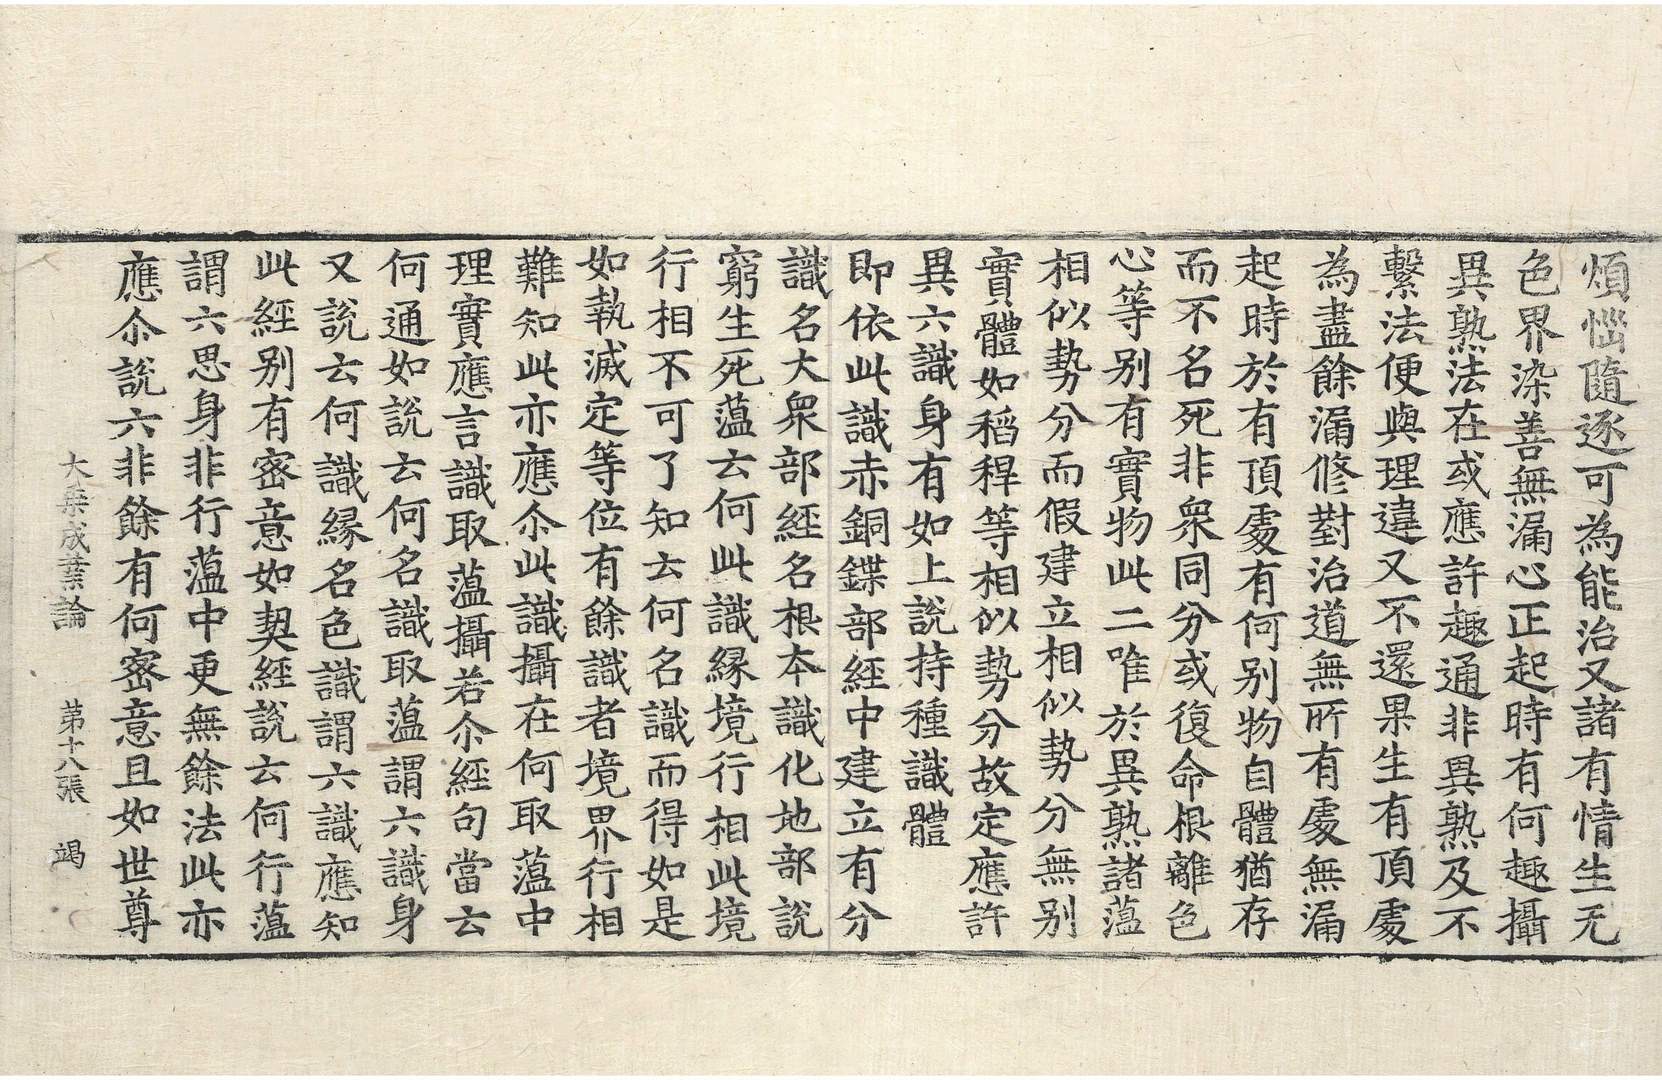 煩惱隨逐可為能治又諸有情生无
色界染善無漏心正起時有何趣攝
異熟法在或應許趣通非異熟及不
繫法便與理違又不還果生有頂處
為盡餘漏修對治道無所有處無漏
起時於有頂處有何別物自體猶存
而不名死非眾同分或復命根離色
心等別有實物此二唯於異熟諸蘊
相似勢分而假建立相似勢分無別
實體如稻稈等相似勢分故定應許
異六識身有如上說持種識體
即依此識赤銅鍱部經中建立有分
識名大眾部經名根本識化地部說
窮生死蘊云何此識緣境行相此境
行相不可了知云何名識而得如是
如執滅定等位有餘識者境界行相
難知此亦應尒此識攝在何取蘊中
理實應言識取蘊攝若尒經句當云
何通如說云何名識取蘊謂六識身
又說云何識緣名色識謂六識應知
此經別有密意如契經說云何行蘊
謂六思身非行蘊中更無餘法此亦
應尒說六非餘有何密意且如世尊
大乗成業論 第十八張 竭